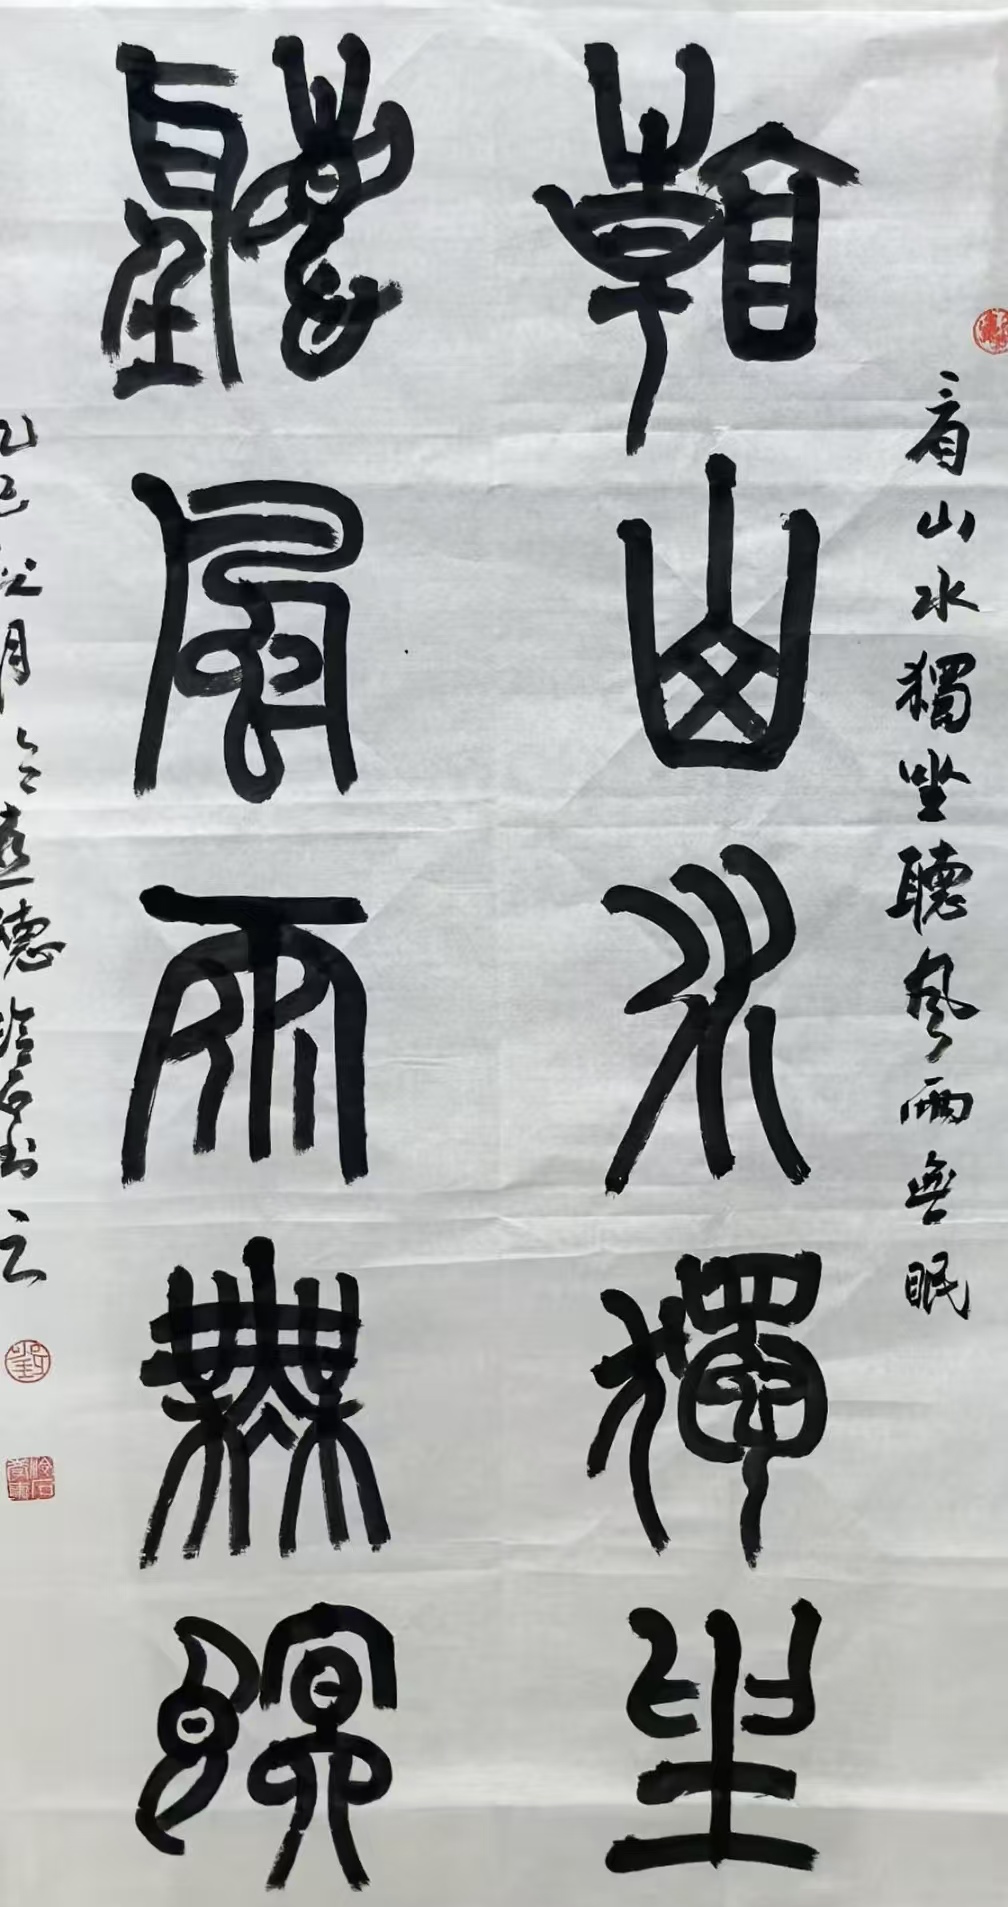 看山水獨坐聽風雨無眠
𩏑山水獨坐
聽風雨無瞑
乙巳秋月